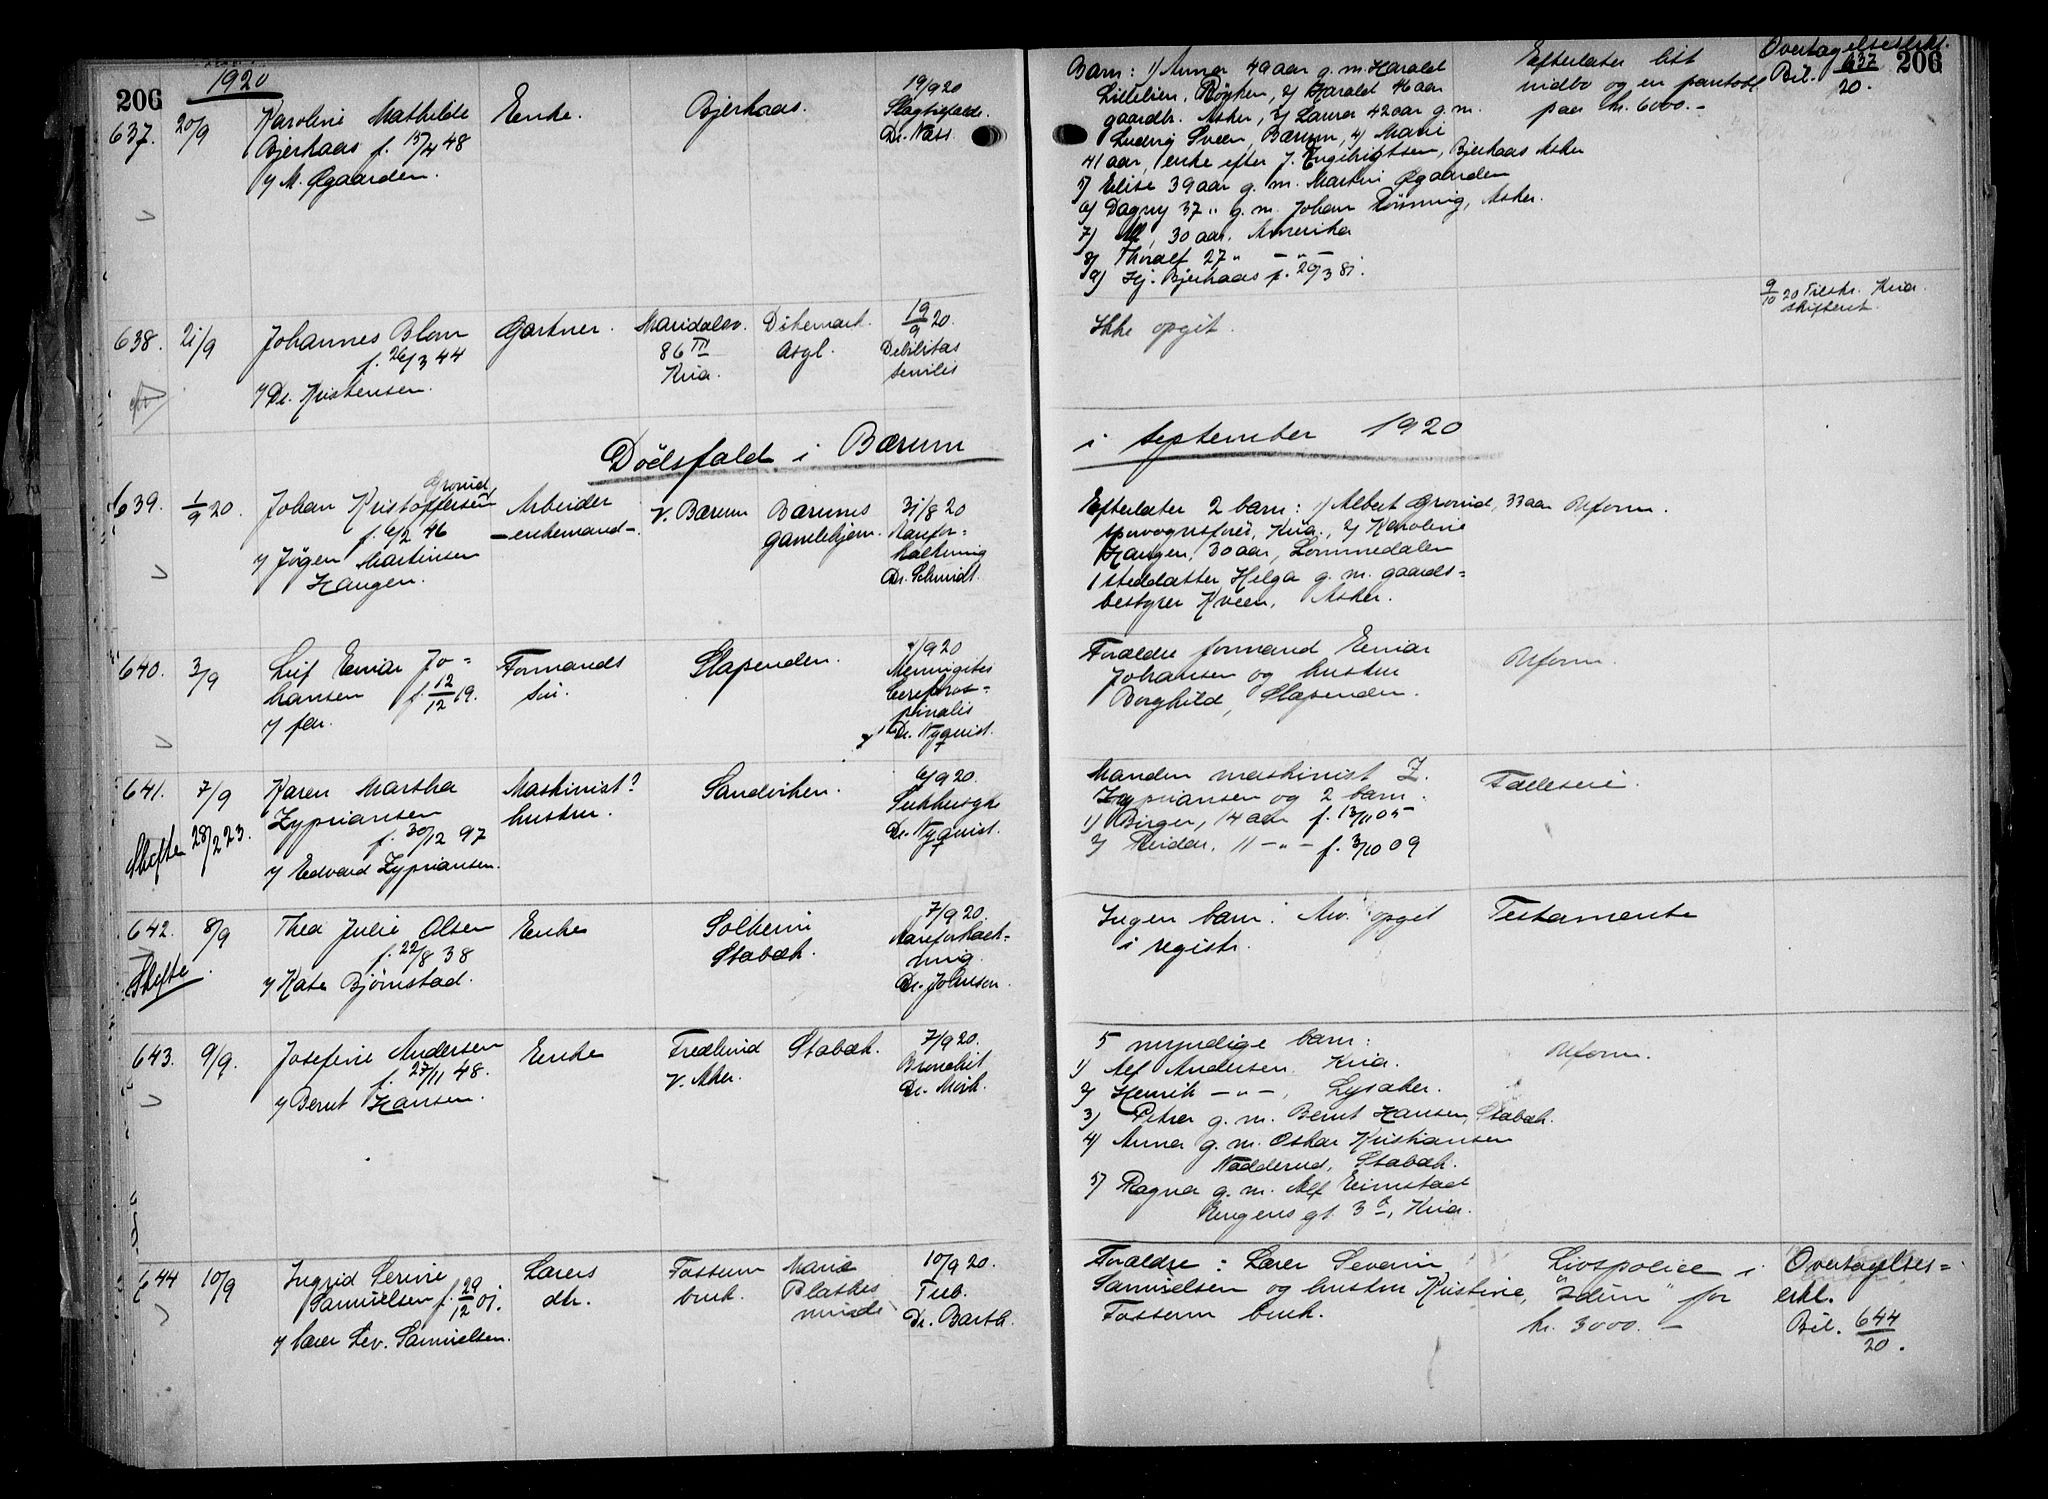 206
1920
637. 20/9 Karoline Mathilde Enke. Bjerkaas. 19/9 20
Bjerkaas f. 15/4 48 Slagtilfælde.
v/ M. Øgaarden. Dr. Næss.
638. 21/9 Johannes Blom Gartner. Maridalsv. Dikemark 19/9 20.
f. 26/3 44 86 III asyl. Debilitas
v/ Dr. Kristensen. Kria. senilis
Dödsfald i Bærum
639. 1/9 20. Johan Kristoffersen Grönid, Arbeider V. Bærum Bærums 31/8 20
f. 6/2 46 -enkemand-. gamlehjem. Marefor=
v/ Jögen Martinsen kalkning
Haugen. Dr. Schmidt.
640. 3/9 Leif Einar Jo= Formands Slapenden. 1/9 20
hansen f. 12/12 19. sön. Meningitis
v/ far. Cerebros=
pinalis
Dr. Nyquist.
641. 7/9 Karen Martha Maskinist? Sandviken. 6/9 20.
Zypriansen hustru. Sukkersyke
f. 30/12 97 Dr. Nyquist.
Skifte 28/2 23.
v/ Edvard Zypriansen.
642. 8/9 Thea Julie Olsen Enke Solheim 7/9 20
f. 22/8 38 Stabæk. Areforkalk=
Skifte. ning.
v/ Kate Bjørnstad. Dr. Johnsen.
643. 9/9. Josefine Andersen Enke Fredlund Stabæk. 7/9 20.
f. 27/11 48. V. Aker. Bronchit
v/ Bernt Hansen. Dr. Mörk.
644 10/9 Ingrid Serine Lærers Fossum Marie 10/9 20.
Samuelsen f. 29/12 01. dtr. bruk. Plathes Tub.
v/ lærer Sev. Samuelsen. minde Dr. Barth.
206
Barn: 1) Anna 49 aar g. m. Harald
Lillelien, Røyken, 2) Harald 46 aar
gaardbr. Asker, 3) Laura 42 aar g. m.
Ludvig Sveen, Bærum, 4) Marie
41 aar, enke efter J. Engebrigtsen, Bjerkaas Asker
5) Elise 39 aar g. m. Martin Øgaarden
6) Dagny 37 " g. m. Johan Rönning, Asker.
7) Alf, 30 aar. Amerika
8) Thoralf 27 " - " -
9) Hj. Bjerkaas f. 20/3 81.
Efterlater litt
indbo og en pantobl
paa kr. 6000.-
Overtagelseserkl.
Bil. 637/20.
Ikke opgit.
9/10 20 Tilskr. Kria.
skifteret.
i september 1920
Efterlater 2 barn: 1) Albert Grönid, 33 aar Uform.
sporvognsförer, Kria., 2) Karoline
Haugen, 30 aar, Lommedalen
1 steddatter Helga g. m. gaards=
bestyrer Kveen, Asker.
Forældre formand Einar Uform.
Johansen og hustru
Borghild, Slapenden.
Manden maskinist Z. Fælleseie
Zypriansen og 2 barn.
1) Birger, 14 aar f. 13/11 05
2) Reidar, 11 - " - f. 3/10 09
Ingen barn. Arv. opget Testamente
i registr.
5 myndige barn: Uform.
1) Alf Andersen Kria.
2) Henrik - " -, Lysaker.
3) Petra g. m. Bernt Hansen, Stabæk.
4) Anna g. m. Oskar Kristiansen
Nadderud, Stabæk.
5) Ragna g. m. Alf Einstad
Bergens gt. 3, Kria.
Forældre: Lærer Severin Livspolice i Overtagelses=
Samuelsen og hustru Kristine, "Idun" for erkl.
Fossum bruk. kr. 3000.- Bil. 644/20.